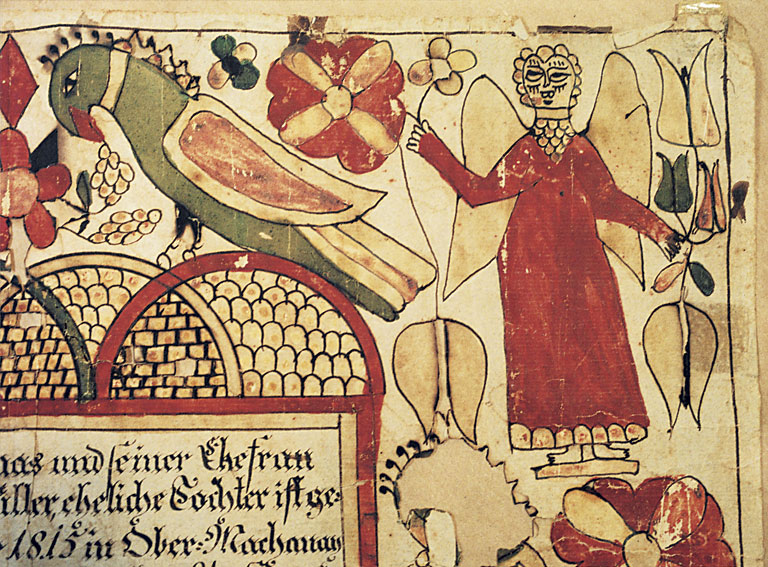 und seiner Ehefrau
eheliche Tochter ist ge-
1815 in Ober-Machanay